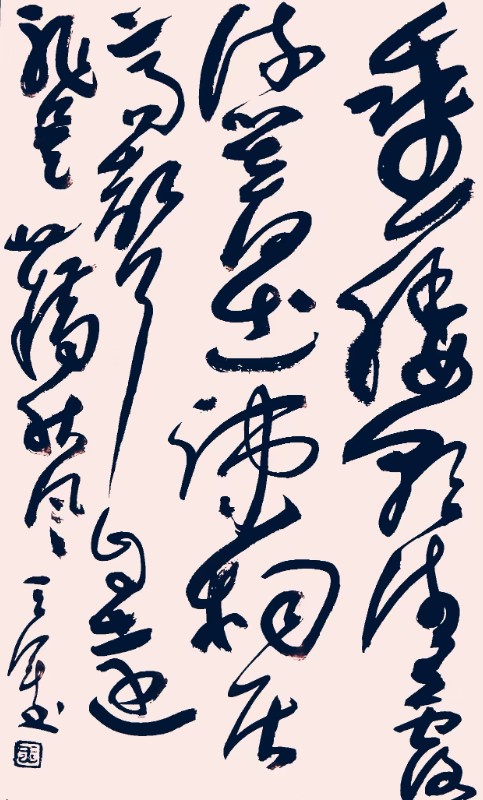 垂緌飲清露
流響出疏桐居
高聲自遠
非是藉秋風